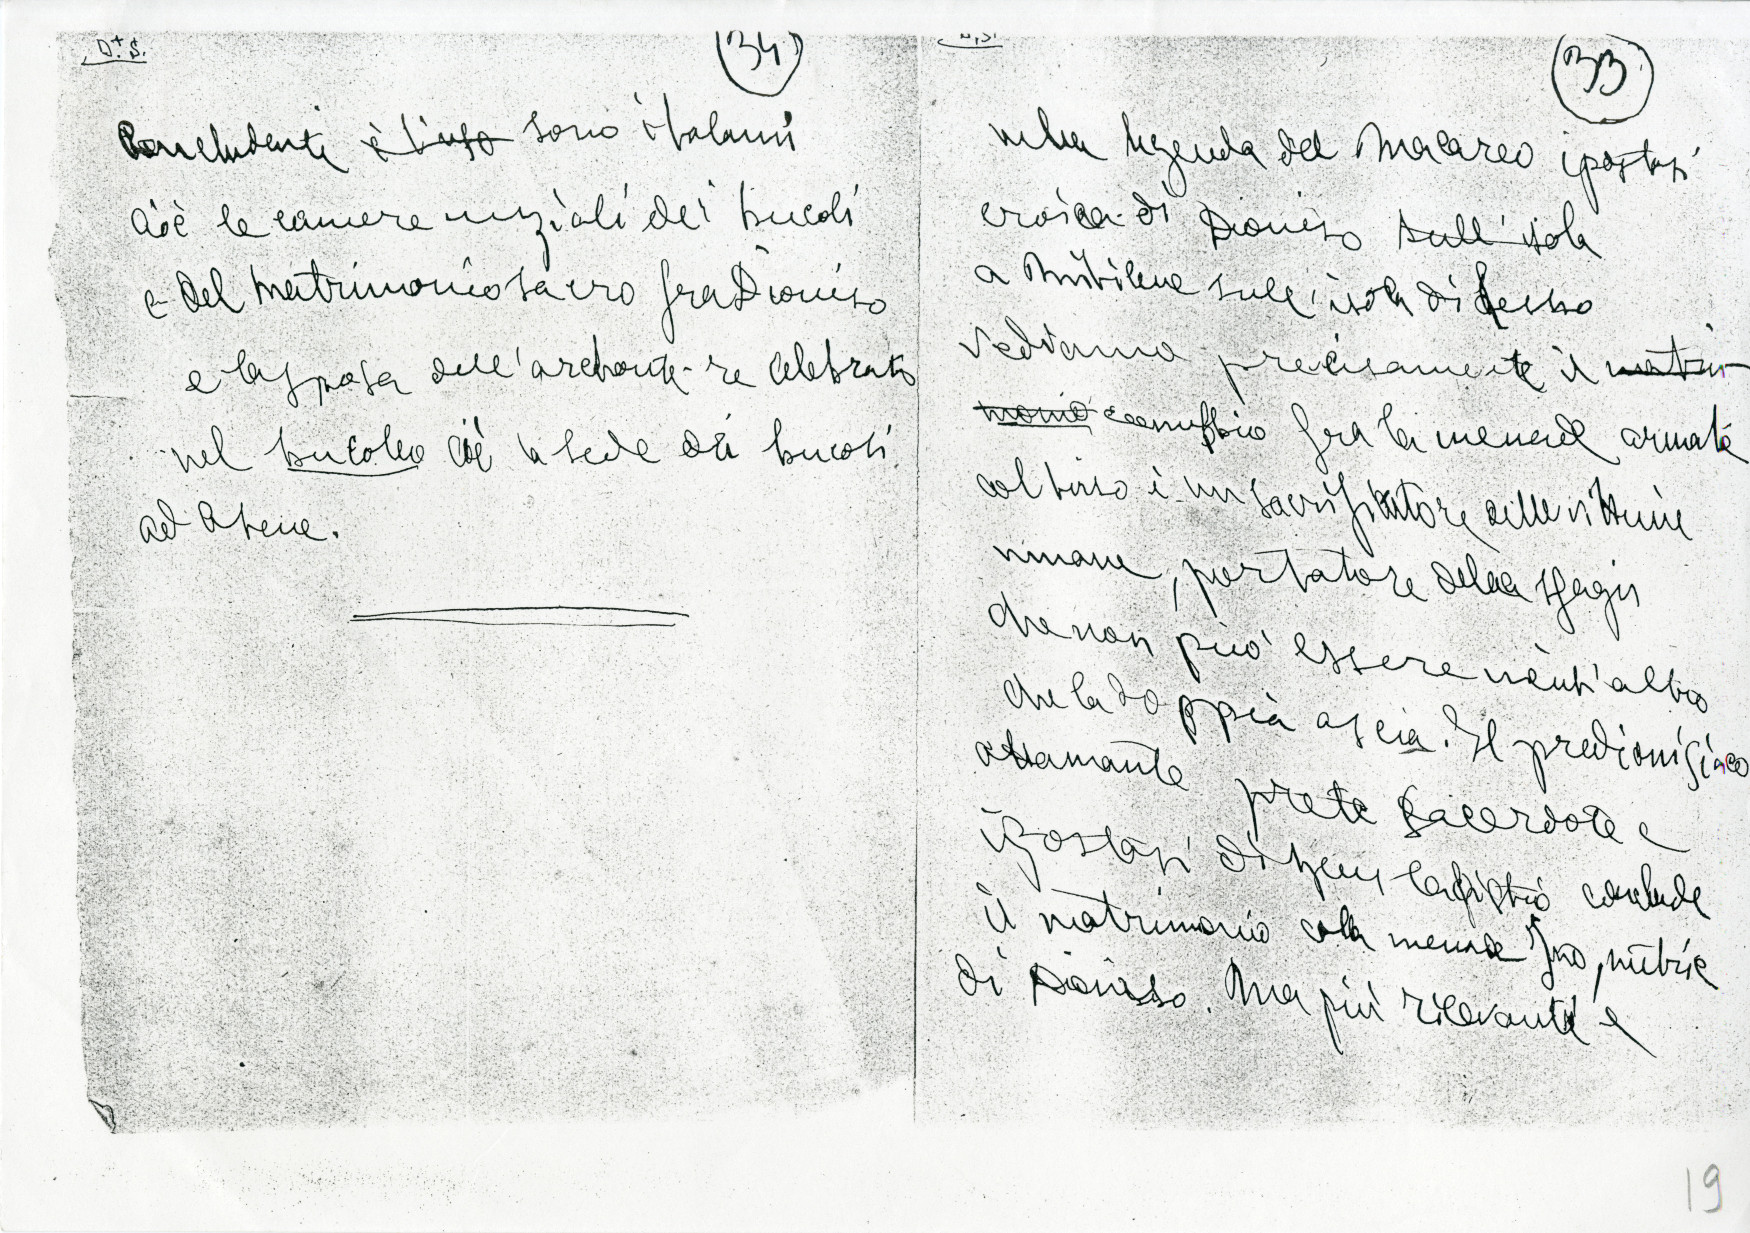 D.S.
34
concludenti è l'uso sono i talami
cioè le camere nuziali dei bucoli
e del matrimonio sacro fra Dioniso
e la sposa dell'arconte-re celebrato
nel bucoleo cioè la sede dei bucoli
ad Atene.
D.S.
33
nella legenda del Macareo ipostasi
eroica di Dioniso sull'isola
a Mitilene sull'isola di Lesbo
vediamo precisamente il matri-
monio connubio fra la menade armata
col tirso i un sacrificatore delle vittime
umane, portatore della sfagis
che non può essere nient'altro
che la doppia ascia. Il predionisiaco
Atamante prete sacerdote e
ipostasi di Zeus Lafistio conclude
il matrimonio colla menade Ino, nutrice
di Dioniso. Ma più rilevanti e
19